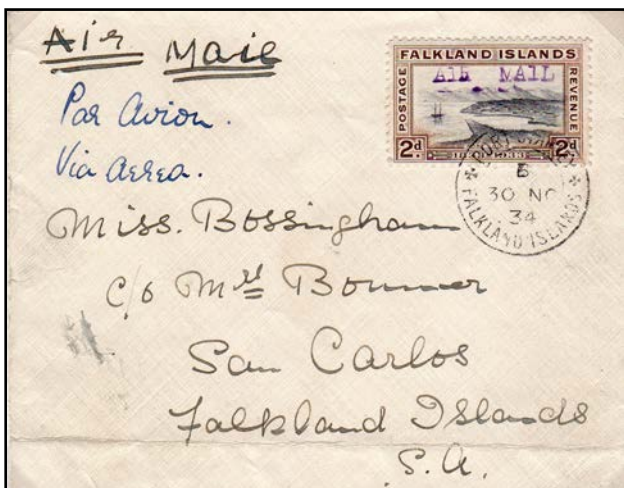 Air Mail
Par Avion.
Via Aerea.
FALKLAND ISLANDS
POSTAGE
REVENUE
AIR MAIL
2d 2d
PORT STANLEY
B
30 NO
34
FALKLAND ISLANDS
Miss. Bossingham
c/o Mrs Bonner
San Carlos
Falkland Islands
S.A.